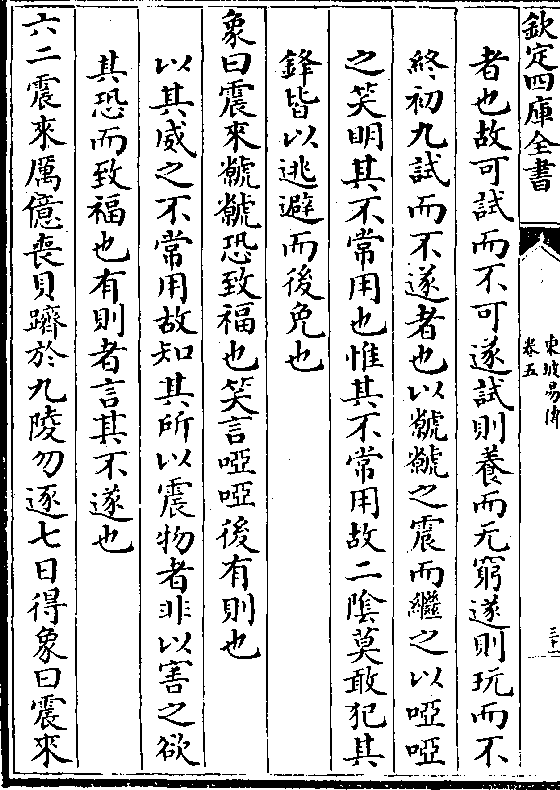 欽定四庫全書
東坡易傳
卷五
三十一
者也故可試而不可遂試則養而无窮遂則玩而不
終初九試而不遂者也以虩虩之震而繼之以啞啞
之笑明其不常用也惟其不常用故二陰莫敢犯其
鋒皆以逃避而後免也
象曰震來虩虩恐致福也笑言啞啞後有則也
以其威之不常用故知其所以震物者非以害之欲
其恐而致福也有則者言其不遂也
六二震來厲億喪貝躋於九陵勿逐七日得象曰震來